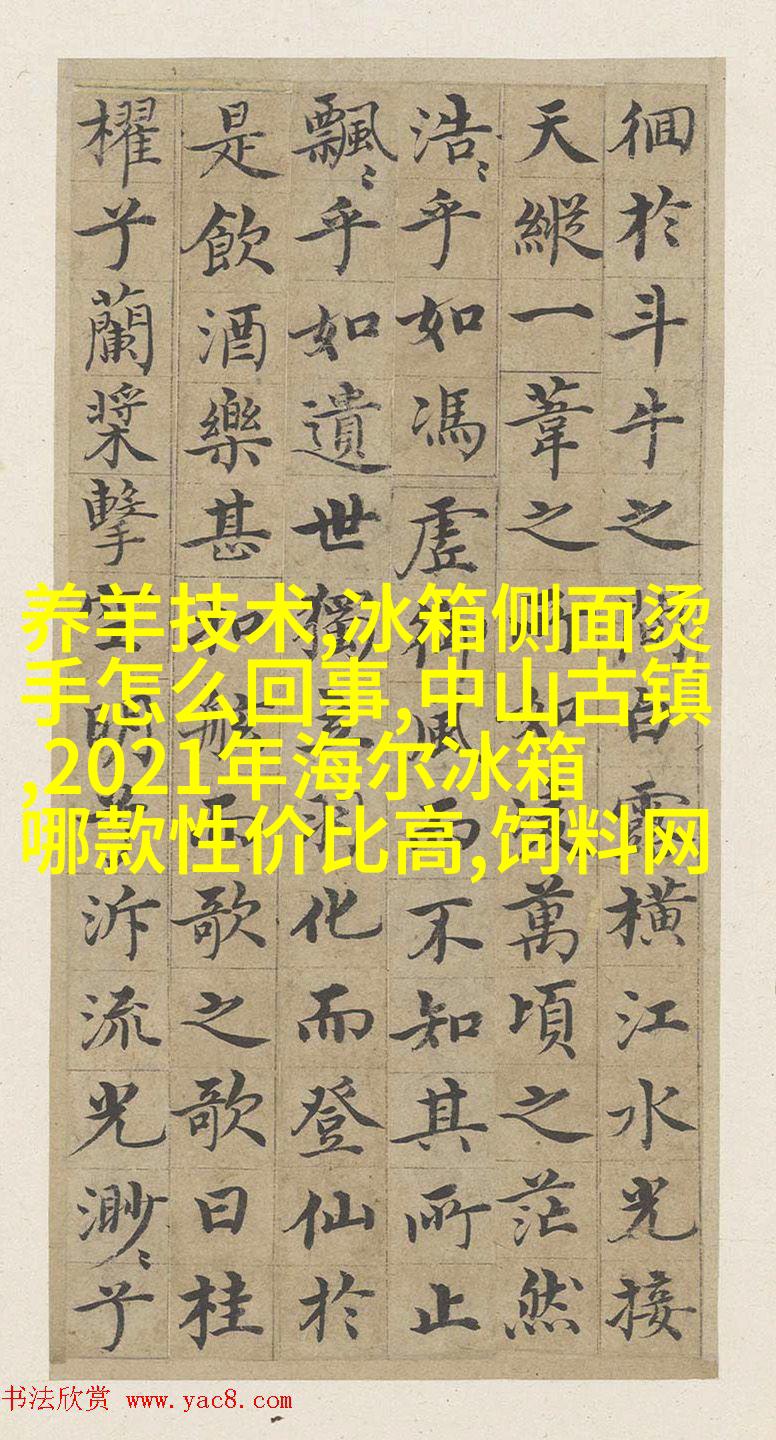 徊於斗牛之間白露橫江水光接
天縱一葦之所如凌萬頃之茫然
浩〻乎如馮虛御風而不知其所止
飄〻乎如遺世獨立羽化而登仙於
是飲酒樂甚扣舷而歌之歌曰桂
櫂兮蘭槳擊空明兮泝流光渺〻兮
养羊技术,冰箱侧面烫
手怎么回事,中山古镇
,2021年海尔冰箱
哪款性价比高,饲料网
书法欣赏 www.yac8.com